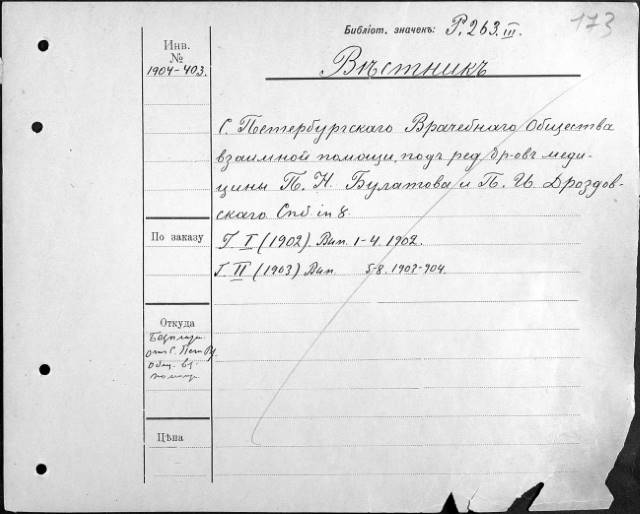 Библіот. значекъ: Р. 263. III.
173
Инв.
№
1904-403.
Вѣстникъ
С. Петербургскаго Врачебнаго Общества
взаимной помощи, подъ ред. др-овъ меди-
цины П. Н. Булатова и П. И. Дроздов-
скаго. Спб. in 8.
По заказу
Г. I (1902). Вып. 1-4. 1902.
Г. II (1903) Вып. 5-8. 1903-904.
Откуда
отъ С. Пет.
Общ. вз.
помощи
Цѣна